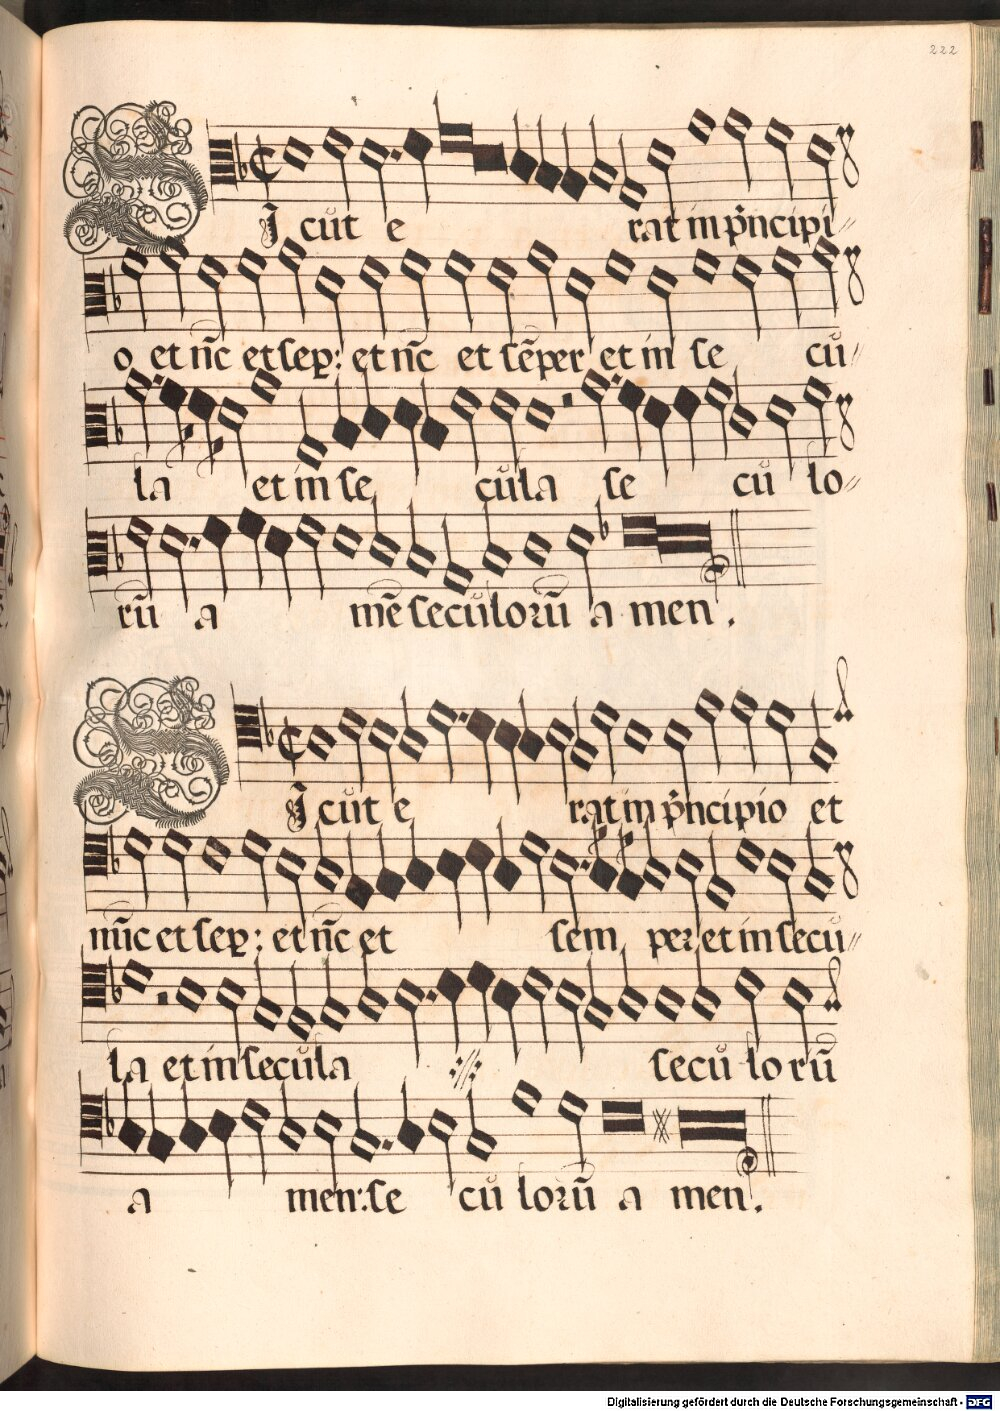 222
SIcut e rat in p̃ncipi//
o et nc̃ et sep̱: et nc̃ et sẽper et in se cu//
la et in se cula se cu lo//
rũ a mẽ seculorũ a men.
SIcut e rat in p̃ncipio et
nũc et sep̱: et nc̃ et sem per et in secu//
la et in secula :// : secu lo rũ
a men: se cu lorũ a men.
Digitalisierung gefördert durch die Deutsche Forschungsgemeinschaft - DFG